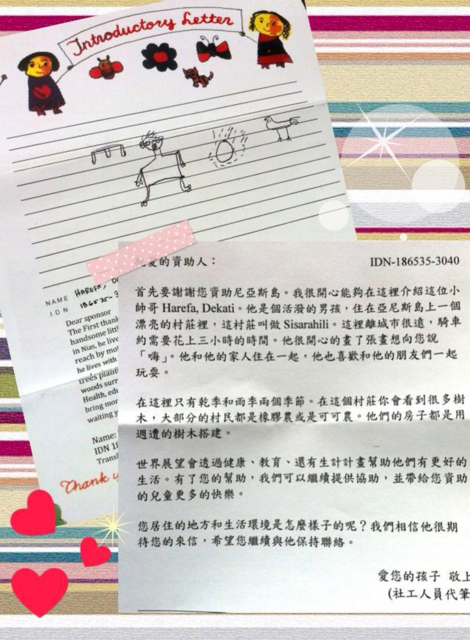 Introductory Letter
NAME HAREFA, D
IDN 186535-3
Dear sponsor
The First thank
handsome littl
in Nias, he live
reach by mot
he lives with
trees plante
woods surr
Health, edu
bring mor
waiting y
Name:
IDN 18
Transl
Thank y
愛的資助人： IDN-186535-3040
首先要謝謝您資助尼亞斯島。我很開心能夠在這裡介紹這位小
帥哥 Harefa, Dekati。他是個活潑的男孩，住在亞尼斯島上一個
漂亮的村莊裡，這村莊叫做 Sisarahili。這裡離城市很遠，騎車
約需要花上三小時的時間。他很開心的畫了張畫想向您說
「嗨」。他和他的家人住在一起，他也喜歡和他的朋友們一起
玩耍。
在這裡只有乾季和雨季兩個季節。在這個村莊你會看到很多樹
木，大部分的村民都是橡膠農或是可可農。他們的房子都是用
週遭的樹木搭建。
世界展望會透過健康、教育、還有生計計畫幫助他們有更好的
生活。有了您的幫助，我們可以繼續提供協助，並帶給您資助
的兒童更多的快樂。
您居住的地方和生活環境是怎麼樣子的呢？我們相信他很期
待您的來信，希望您繼續與他保持聯絡。
愛您的孩子 敬上
(社工人員代筆